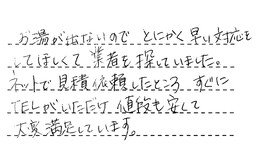 お湯が出ないので とにかく早い対応を
してほしくて 業者を探していました。
ネットで見積依頼したところ すぐに
TELがいただけ 値段も安くて
大変満足しています。